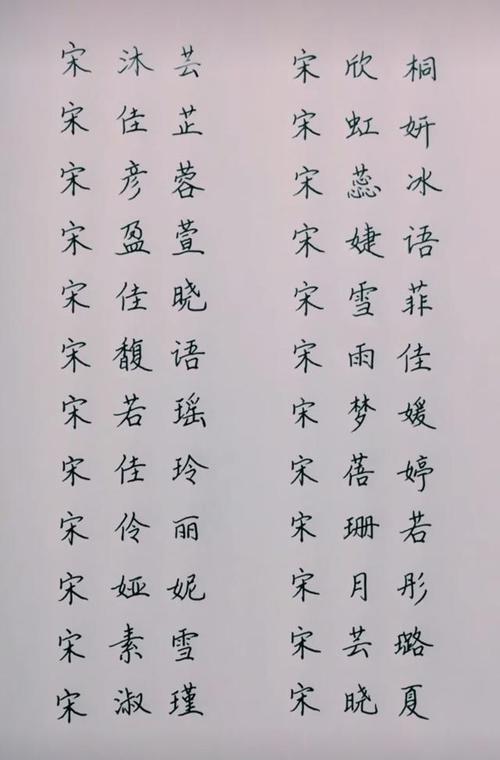 宋沐芸
宋佳芷
宋彦蓉
宋盈萱
宋佳晓
宋馥语
宋若瑶
宋佳玲
宋伶丽
宋娅妮
宋素雪
宋淑瑾
宋欣桐
宋虹妍
宋蕊冰
宋婕语
宋雪菲
宋雨佳
宋梦媛
宋蓓婷
宋珊若
宋月彤
宋芸璐
宋晓夏